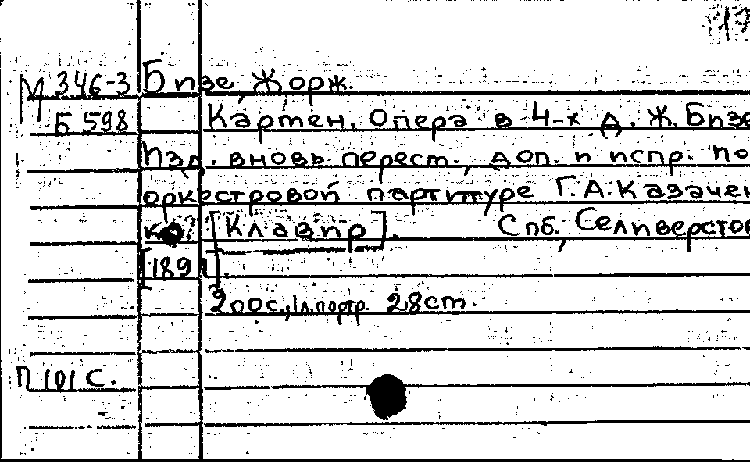 17
М 346-3 Бизе, Жорж.
Б 598 Кармен. Опера в 4-х д. Ж. Бизе
Изд. вновь перест., доп. и испр. по
оркестровой партитуре Г.А. Казачен
ко. [Клавир]. Спб., Селиверстов
[1891].
200с., 1л. портр. 28см.
П 101 С.